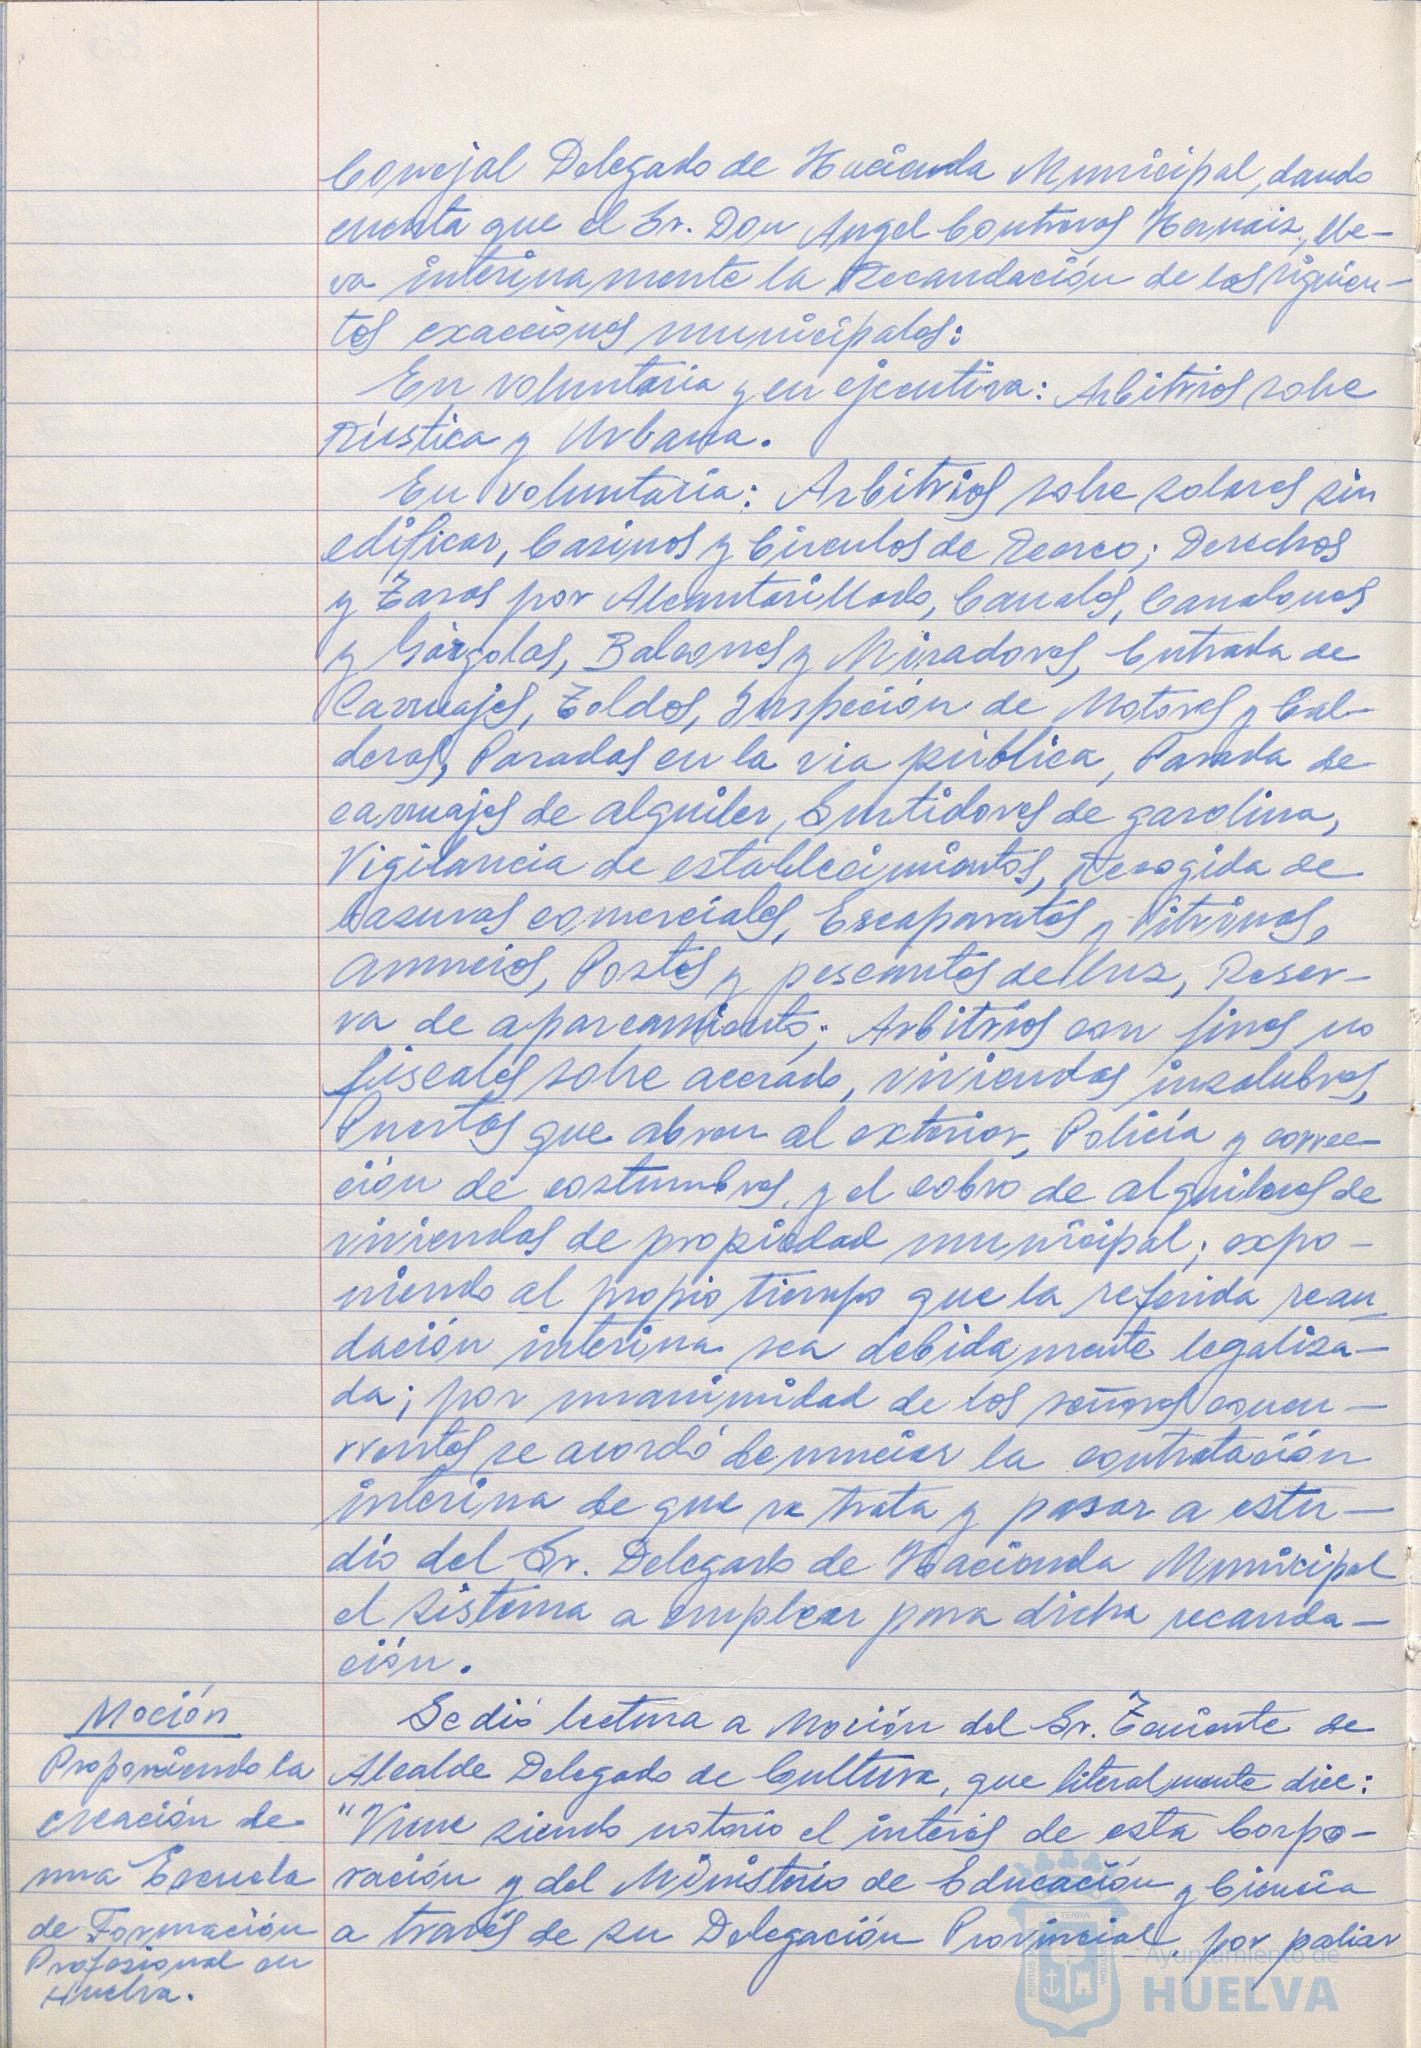 Concejal Delegado de Hacienda Municipal, dando
cuenta que el Sr. Don Angel Contreras Hernaiz, lle-
va interinamente la Recaudación de las siguien-
tes exacciones municipales:
En voluntaria y en ejecutiva: Arbitrios sobre
Rústica y Urbana.
En voluntaria: Arbitrios sobre solares sin
edificar, Casinos y Circulos de Recreo; Derechos
y Tasas por Alcantarillado, Canales, Canalones
y Gárgolas, Balcones y Miradores, Entrada de
Carruajes, Toldos, Inspección de Motores y Cal-
deras, Paradas en la via pública, Parada de
carruajes de alquiler, Surtidores de gasolina,
Vigilancia de establecimientos, Recogida de
basuras comerciales, Escaparates y Vitrinas,
Anuncios, Postes y pescantes de luz, Reser-
va de aparcamiento; Arbitrios con fines no
fiscales sobre acerado, viviendas insalubres,
Puertas que abren al exterior, Policía y correc-
ción de costumbres, y el cobro de alquileres de
viviendas de propiedad municipal; expo-
niendo al propio tiempo que la referida recau_
dación interina sea debidamente legaliza-
da; por unanimidad de los señores concu-
rrentes se acordó denunciar la contratación
interina de que se trata y pasar a estu-
dio del Sr. Delegado de Hacienda Municipal
el sistema a emplear para dicha recauda-
ción.
Moción
Proponiendo la
creación de
una Escuela
de Formación
Profesional en
Huelva.
Se dió lectura a Moción del Sr. Teniente de
Alcalde Delegado de Cultura, que literalmente dice:
"Viene siendo notorio el interés de esta Corpo-
ración y del Ministerio de Educación y Ciencia
a través de su Delegación Provincial, por paliar
Ayuntamiento de
HUELVA
PORTUS
ET TERRA
CUSTODIA